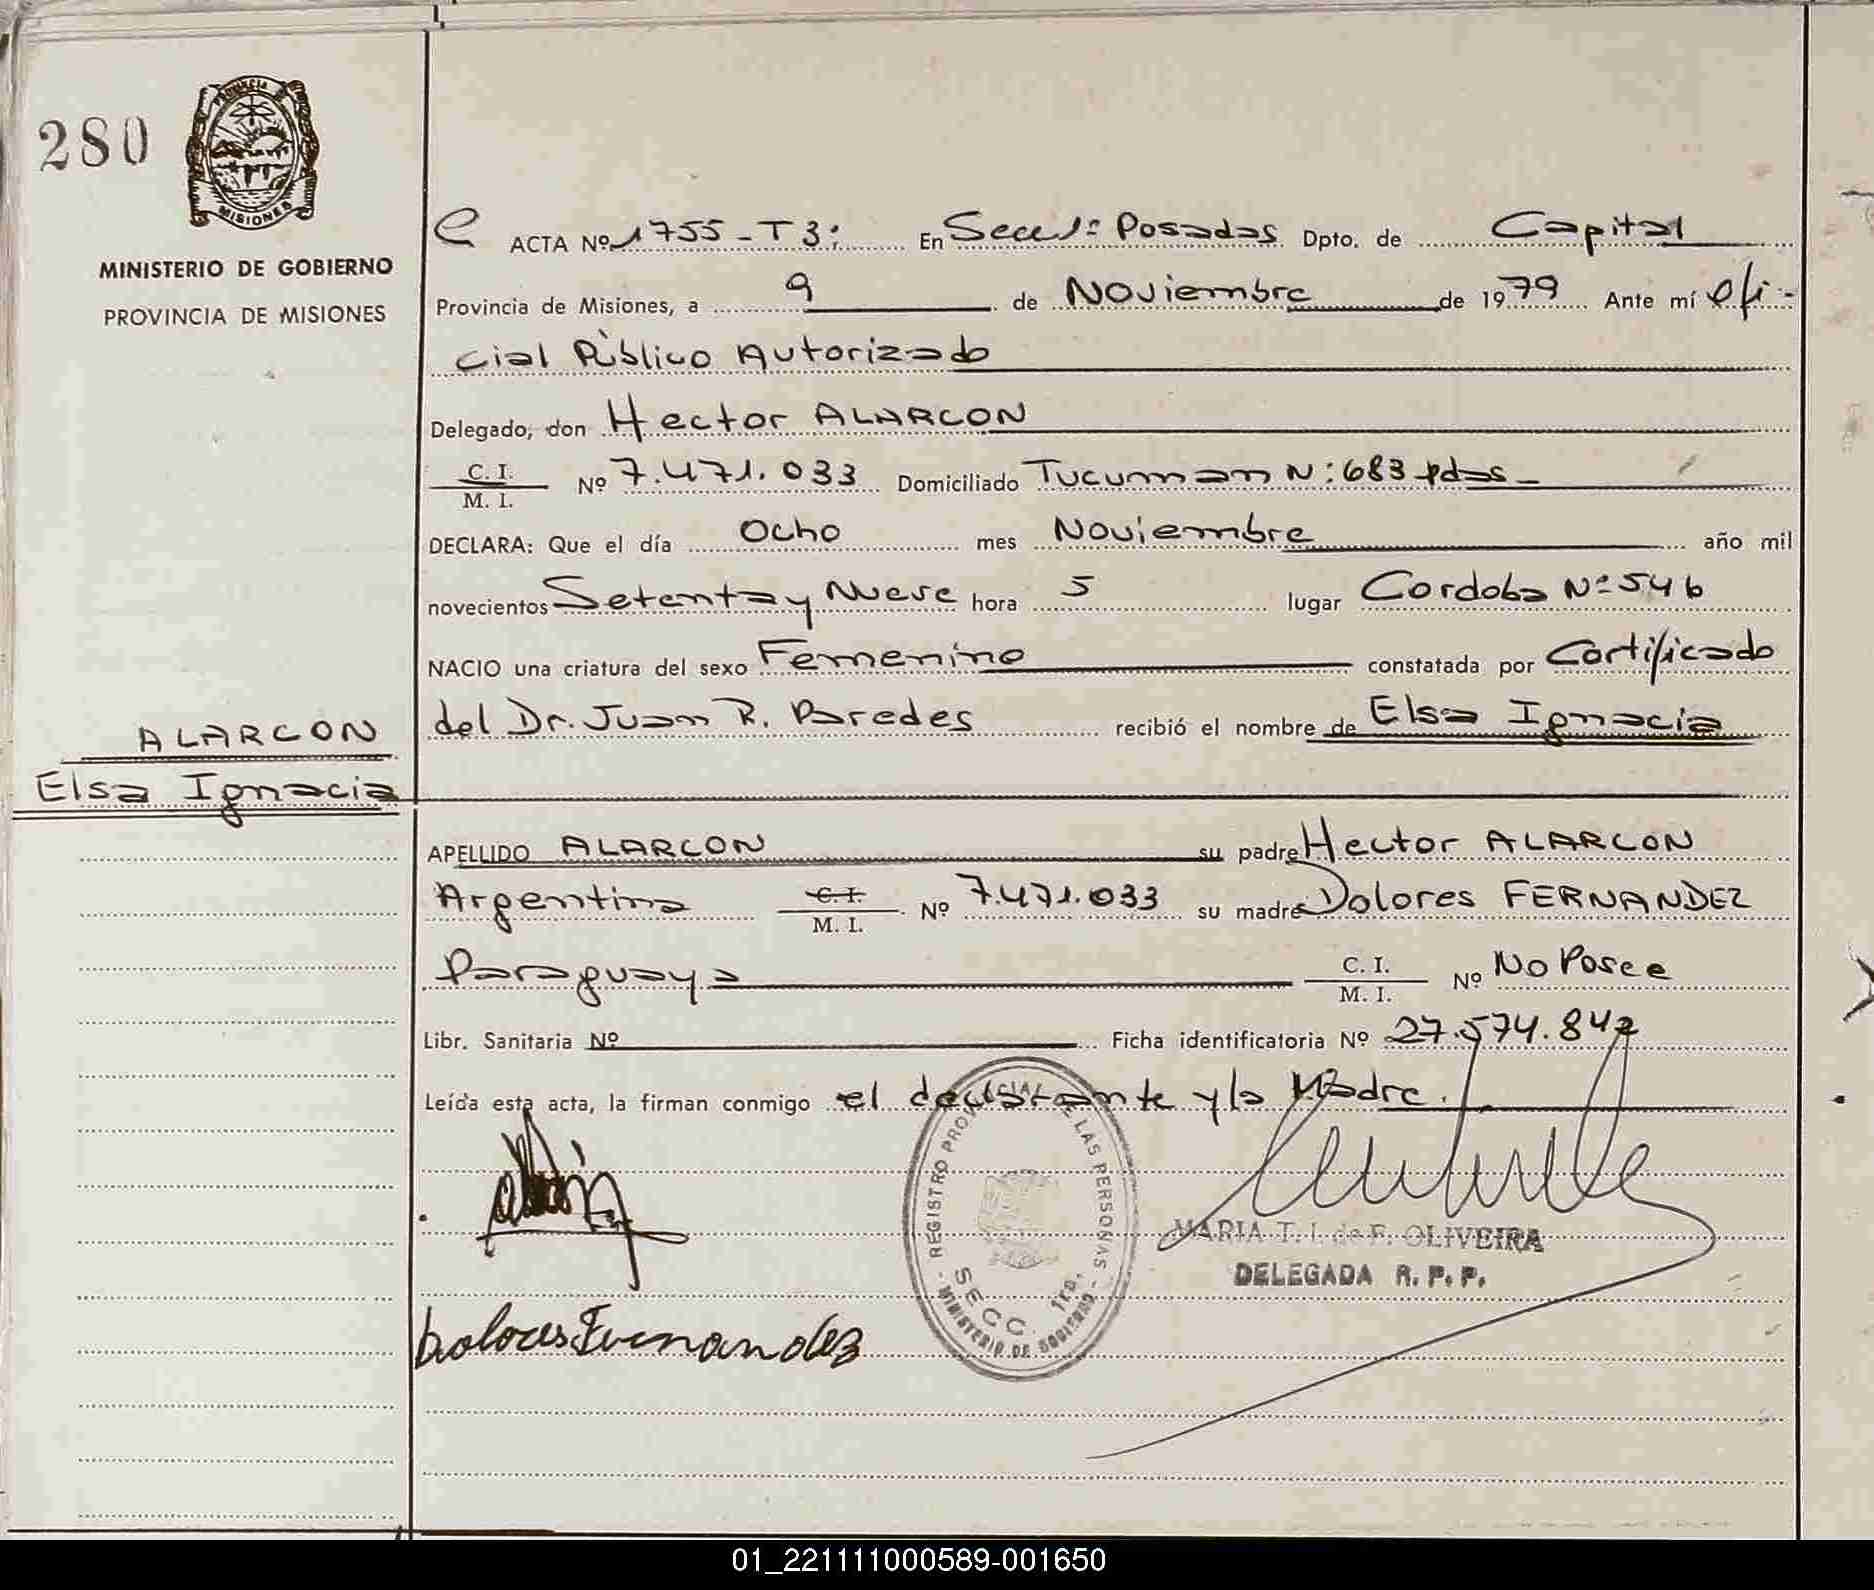 280
PROVINCIA DE
MISIONES
MINISTERIO DE GOBIERNO
PROVINCIA DE MISIONES
ALARCON
Elsa Ignacia
ACTA Nº 1755 - T 3: En Secc 1º Posadas Dpto. de Capital
Provincia de Misiones, a 9 de Noviembre de 1979 Ante mí Ofi-
cial Público Autorizado
Delegado, don Hector ALARCON
C. I. / M. I. Nº 7.471.033 Domiciliado Tucuman N: 683 pdas
DECLARA: Que el día Ocho mes Noviembre año mil
novecientos Setenta y Nueve hora 5 lugar Cordoba Nº 546
NACIO una criatura del sexo Femenino constatada por Certificado
del Dr. Juan R. Paredes recibió el nombre de Elsa Ignacia
APELLIDO ALARCON su padre Hector ALARCON
Argentina C. I. / M. I. Nº 7.471.033 su madre Dolores FERNANDEZ
Paraguaya C. I. / M. I. Nº No Posee
Libr. Sanitaria Nº Ficha identificatoria Nº 27.574.842
Leída esta acta, la firman conmigo el declarante y la Madre.
REGISTRO PROVINCIAL DE LAS PERSONAS
SECC. 1RA.
MINISTERIO DE GOBIERNO
MARIA T. I. de F. OLIVEIRA
DELEGADA R. P. P.
Dolores Fernandez
01_221111000589-001650